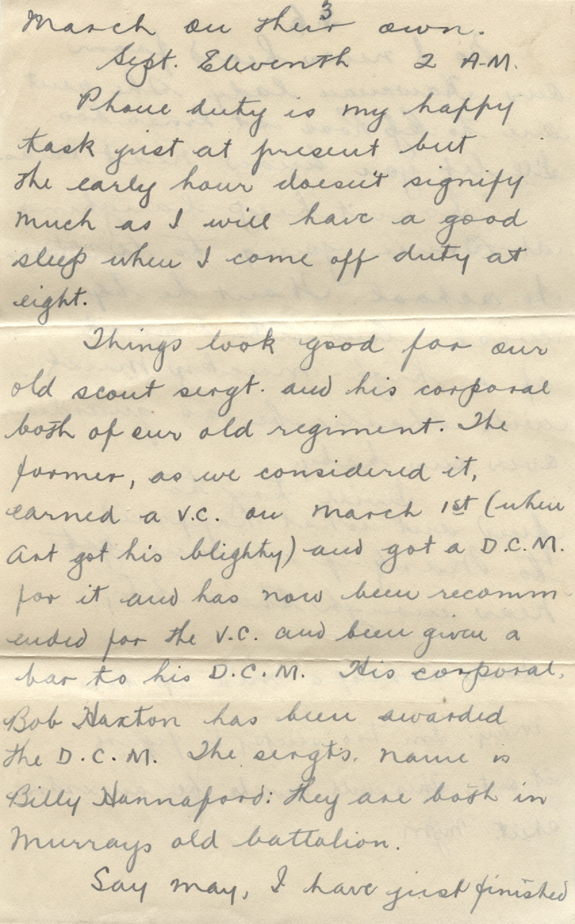 3
March on their own.
Sept. Eleventh 2 A.M.
Phone duty is my happy
task just at present but
the early hour doesn't signify
much as I will have a good
sleep when I come off duty at
eight.
Things look good for our
old scout sergt. and his corporal
both of our old regiment. The
former, as we considered it,
earned a V.C. on March 1st (when
Art got his blighty) and got a D.C.M.
for it and has now been recomm-
ended for the V.C. and been given a
bar to his D.C.M. His corporal,
Bob Haxton has been awarded
the D.C.M. The sergts. name is
Billy Hannaford: they are both in
Murrays old battalion.
Say may, I have just finished